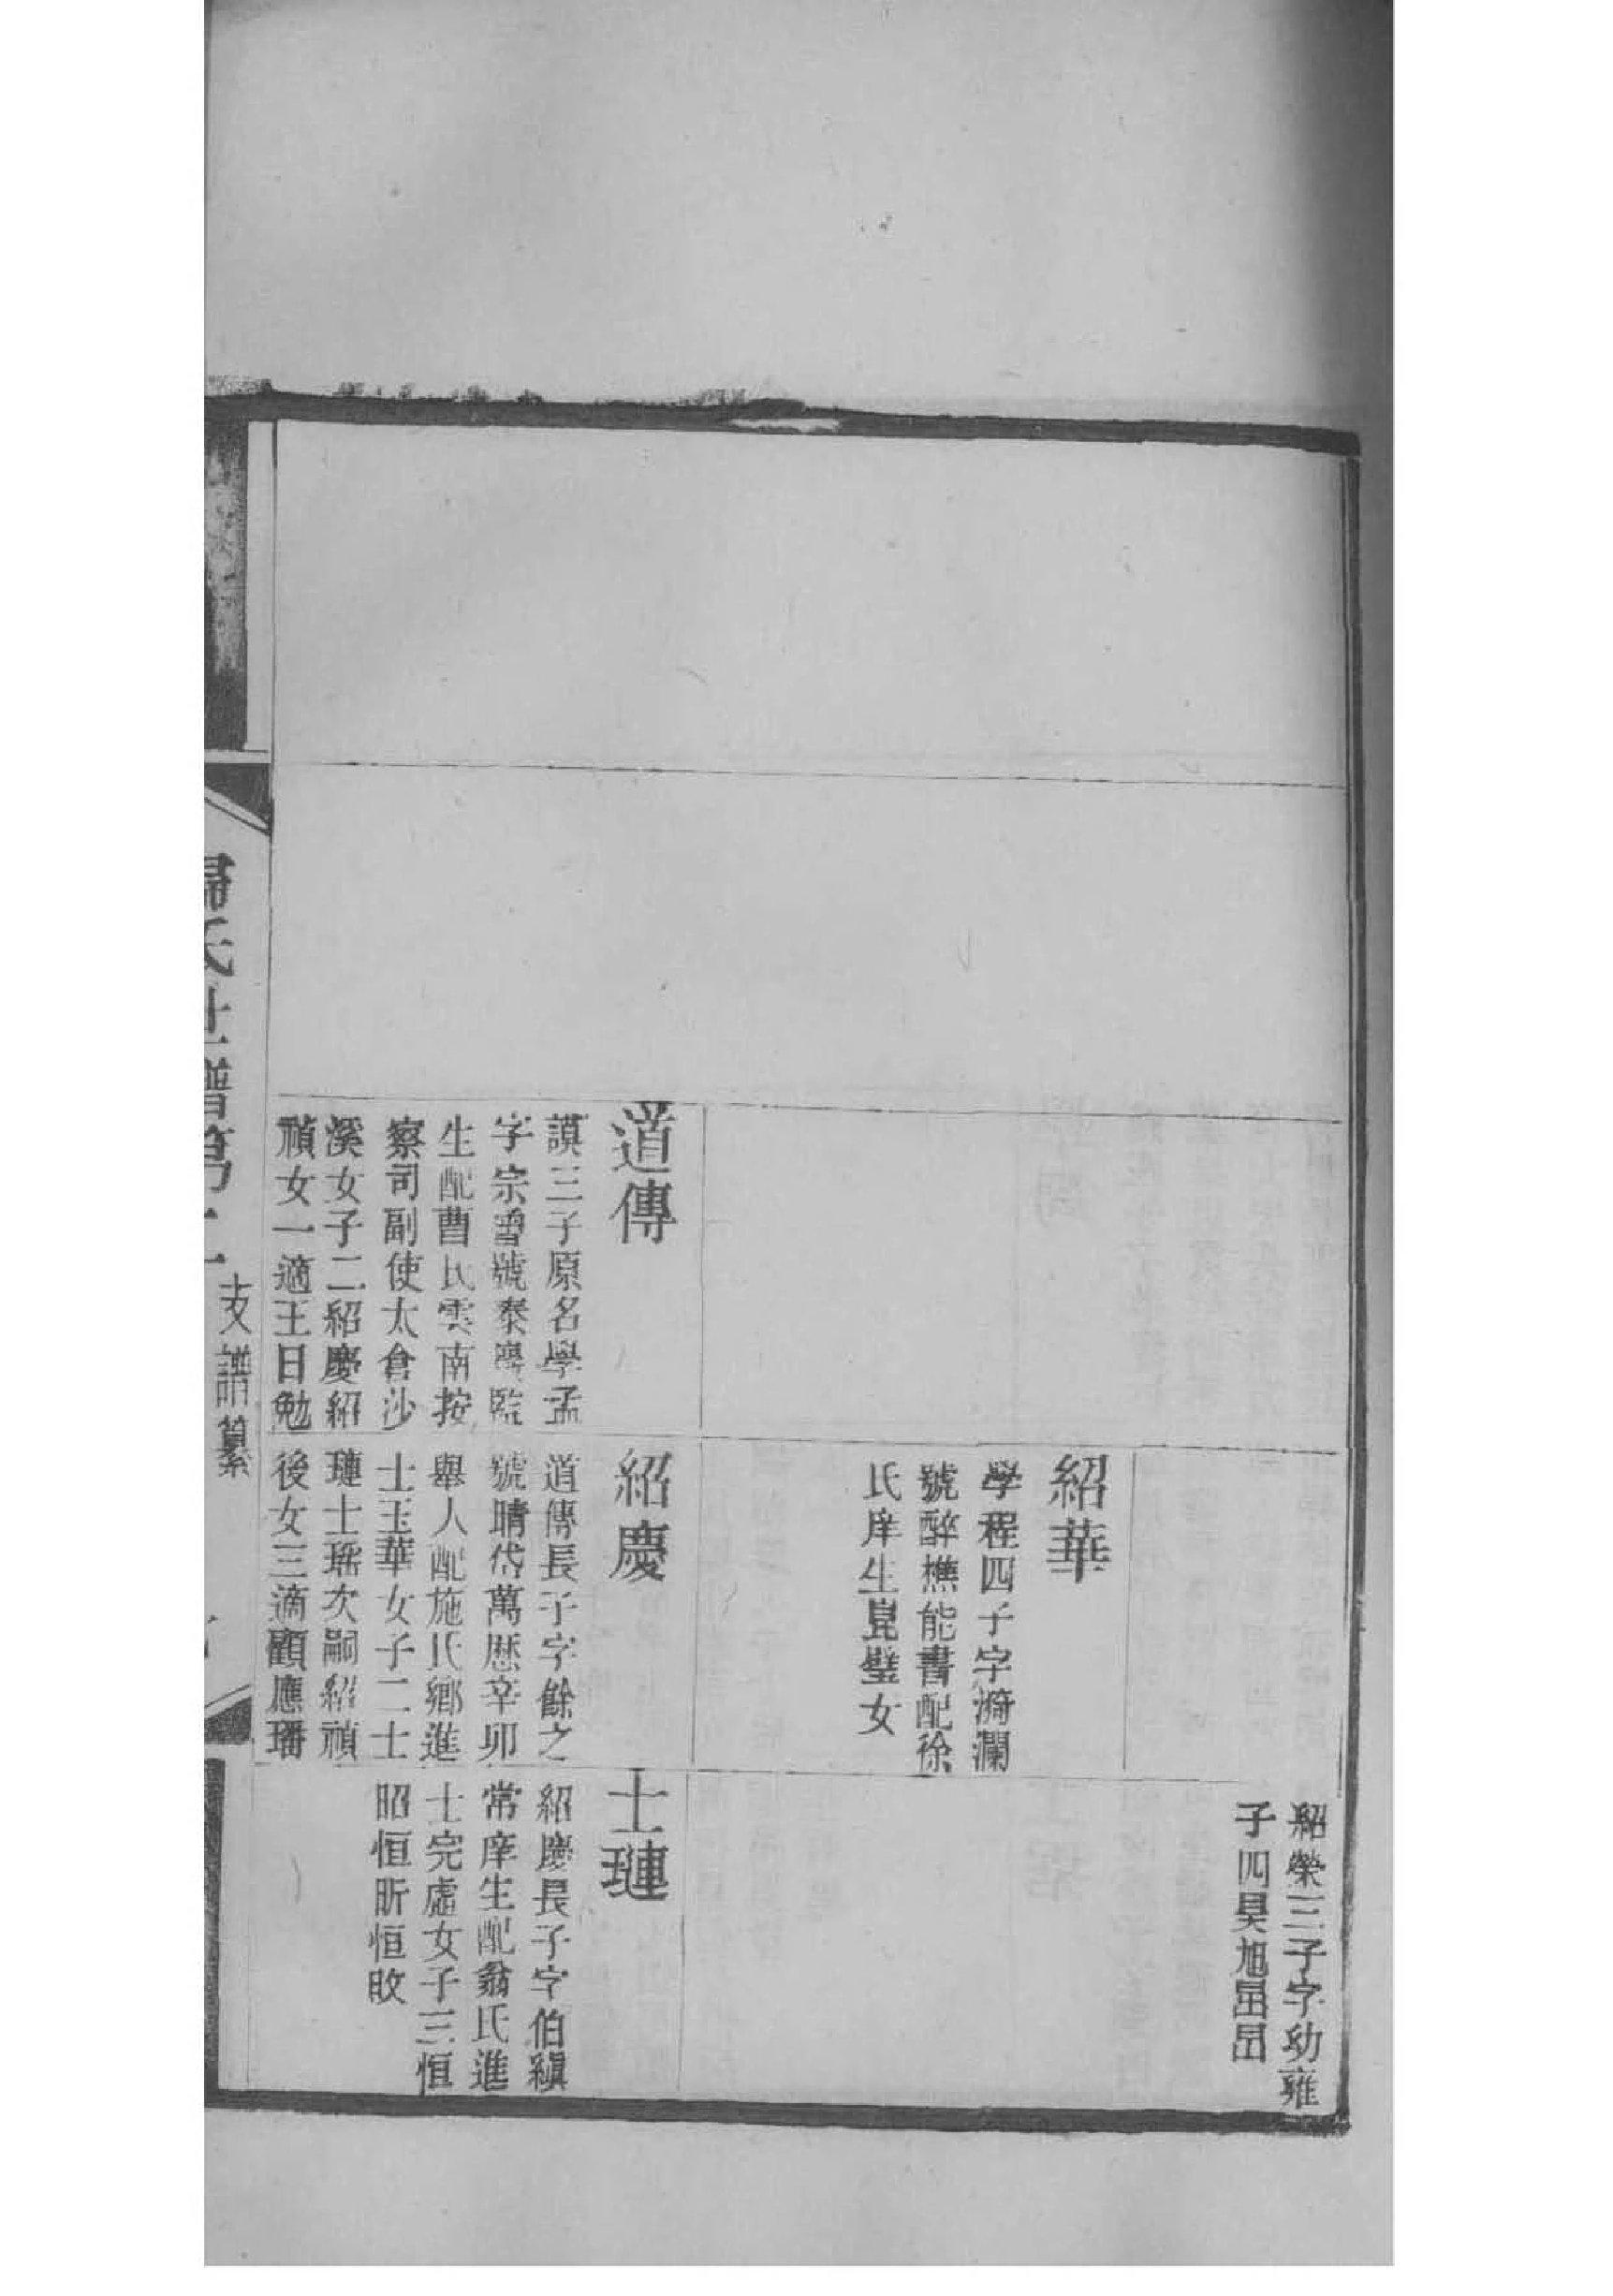 紹榮三子字幼雍
子四昊旭昌昆
紹華
學程四子字漪瀾
號醉樵能書配徐
氏庠生崑璧女
道傳
謨三子原名學孟
字宗魯號泰巖監
生配曹氏雲南按
察司副使太倉沙
溪女子二紹慶紹
禎女一適王日勉
紹慶
道傳長子字餘之
號晴岱萬歷辛卯
舉人配施氏鄉進
士玉華女子二士
璉士瑤次嗣紹禎
後女三適顧應璠
士璉
紹慶長子字伯縝
常庠生配翁氏進
士完虛女子三恒
昭恒昕恒敃
歸氏世譜第十二
支譜纂